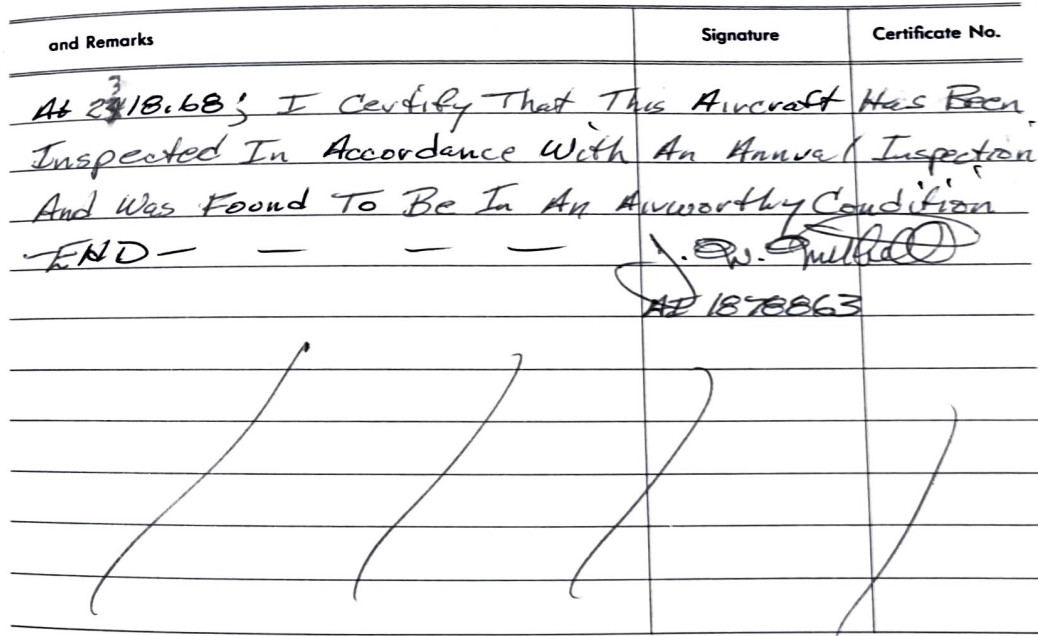 and Remarks Signature Certificate No.
At 2318.68; I Certify That This Aircraft Has Been
Inspected In Accordance With An Annual Inspection
And Was Found To Be In An Airworthy Condition
-END- — — —
J. W.
AI 1878863